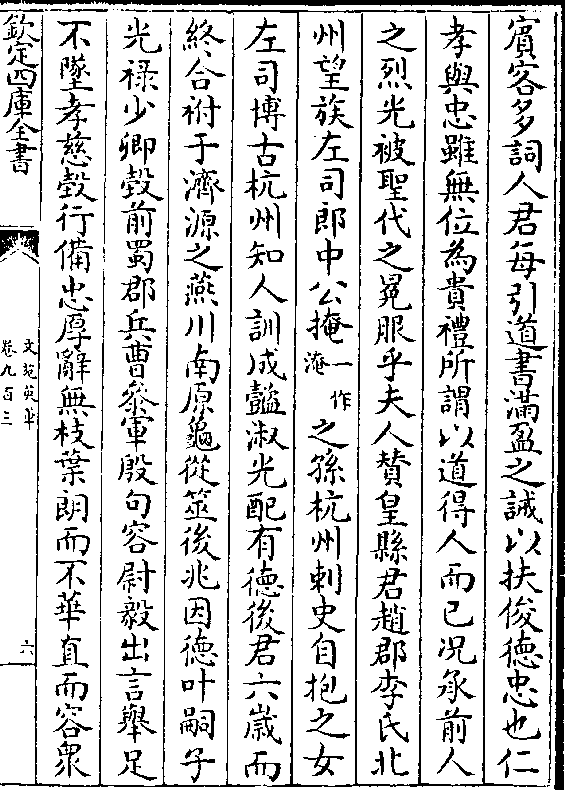 賓客多詞人君每引道書滿盈之誡以扶俊德忠也仁
孝與忠雖無位為貴禮所謂以道得人而已況承前人
之烈光被聖代之冕服乎夫人贊皇縣君趙郡李氏北
州望族左司郎中公掩一作淹之孫杭州刺史自挹之女
左司博古杭州知人訓成懿淑光配有德後君六歲而
終合祔于濟源之燕川南原龜從筮後兆因德叶嗣子
光禄少卿㲄前蜀郡兵曹叅軍殷句容尉毅出言舉足
不墜孝慈㲄行備忠厚辭無枝葉朗而不華直而容衆
欽定四庫全書
文苑英華
卷九百三
六